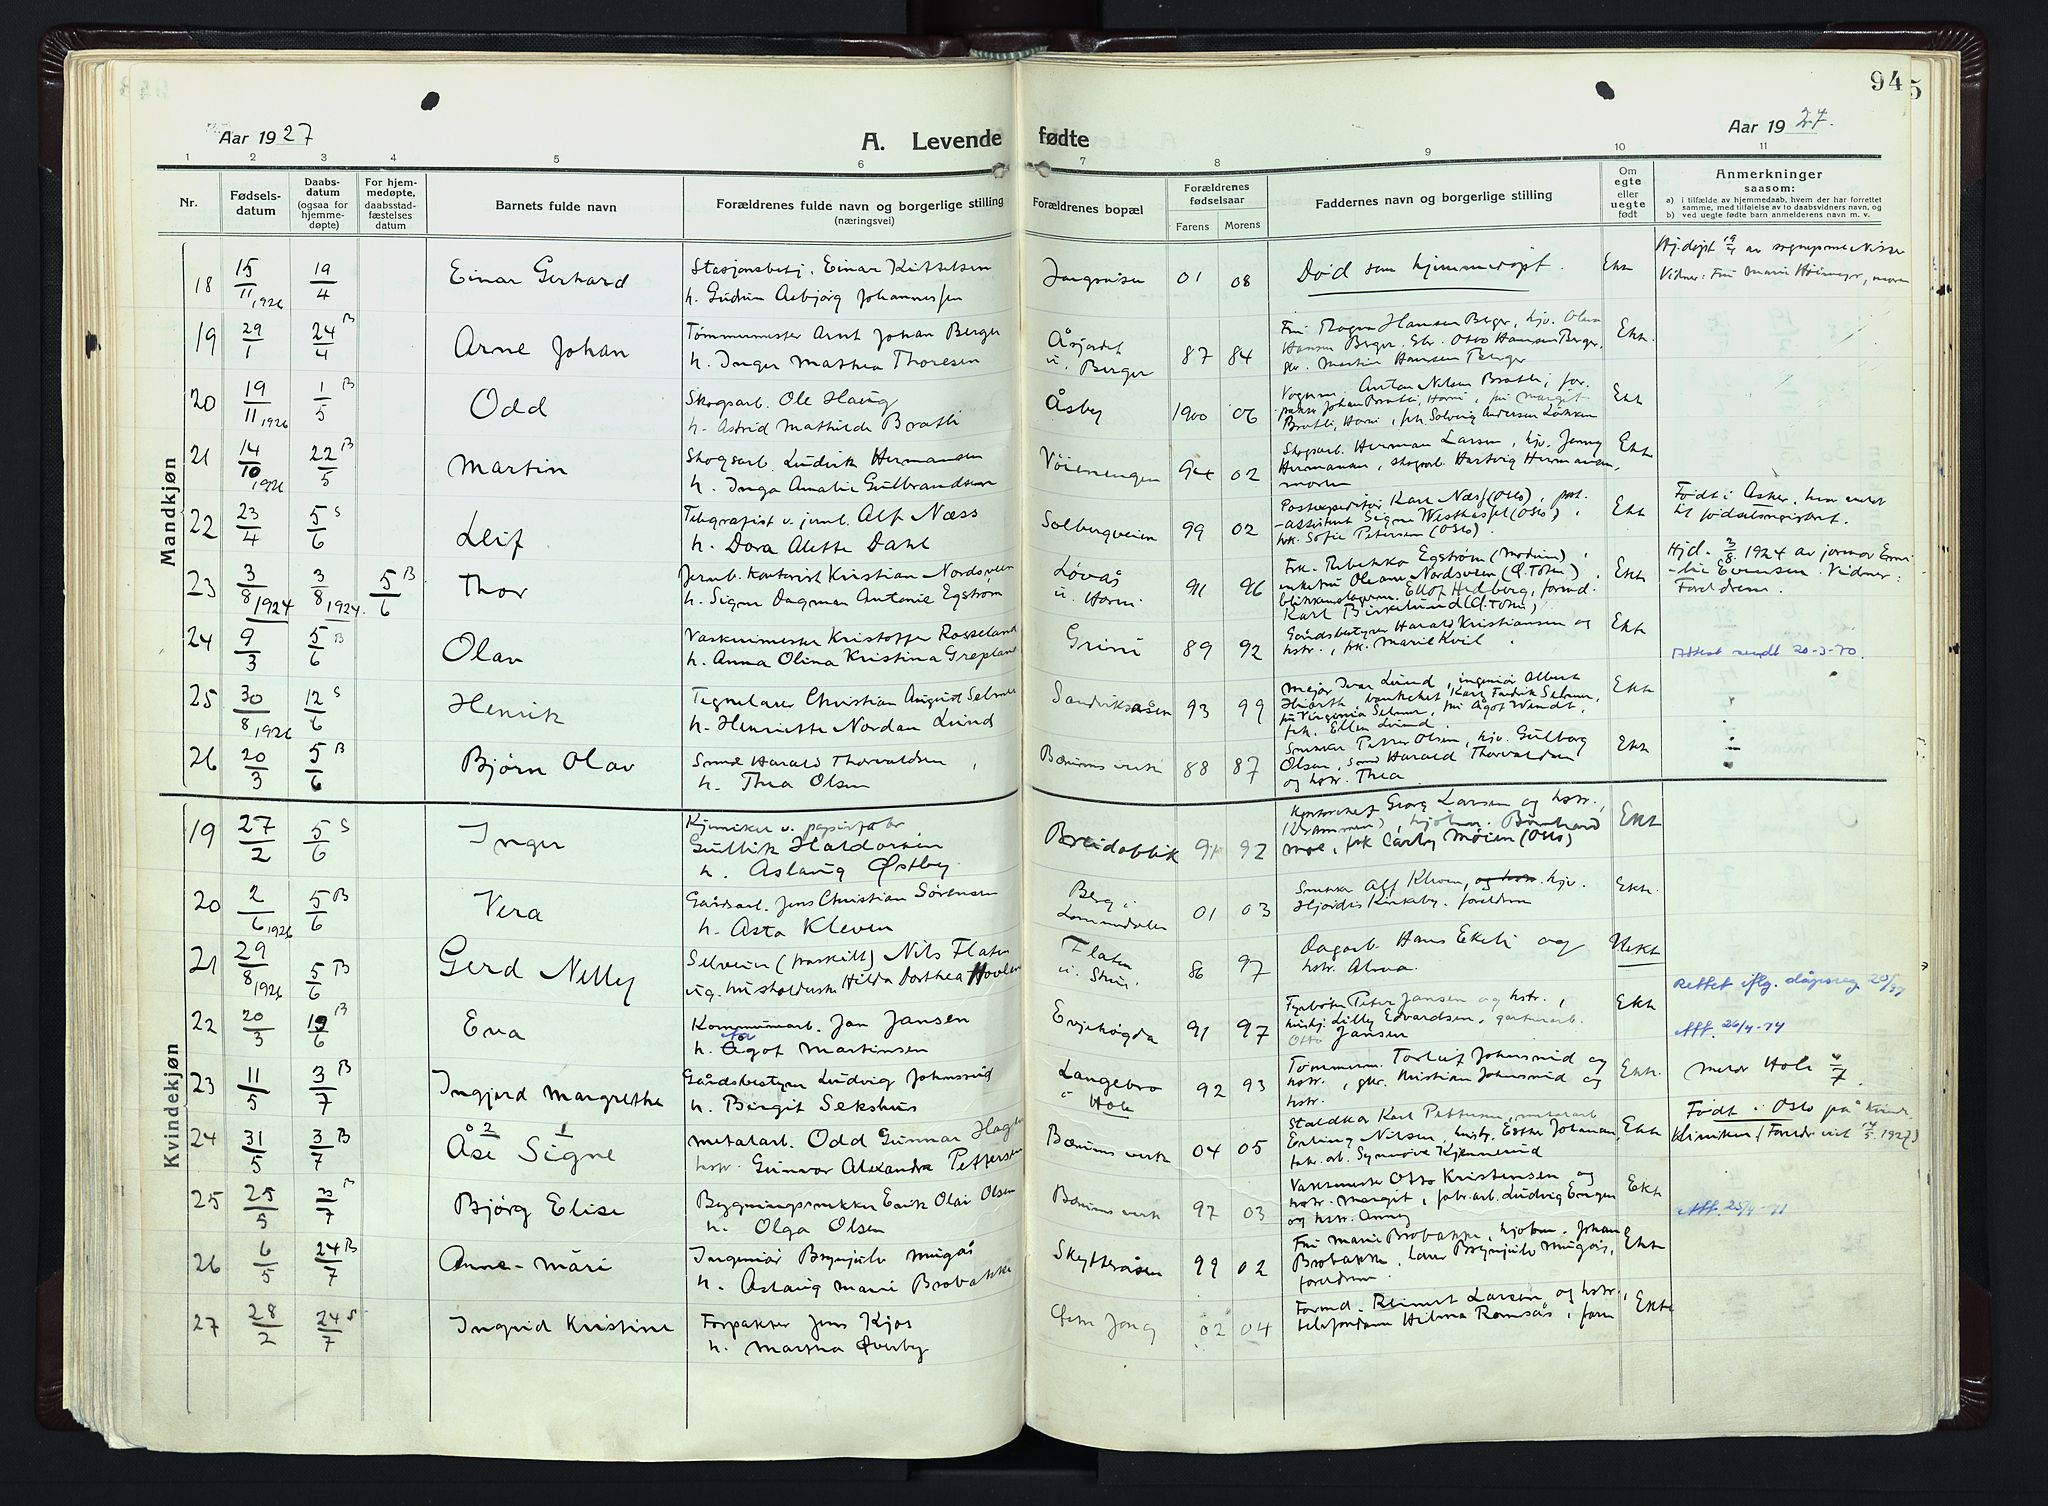 94
5
Aar 1927
A. Levende fødte
Aar 1927.
1 2 3 4 5 6 7 8 9 10 11
Nr.
Fødsels-
datum
Daabs-
datum
(ogsaa for
hjemme-
døpte)
For hjem-
medøpte,
daabsstad-
fæstelses
datum
Barnets fulde navn
Forældrenes fulde navn og borgerlige stilling
(næringsvei)
Forældrenes bopæl
Forældrenes
fødselsaar
Farens Morens
Faddernes navn og borgerlige stilling
Om
egte
eller
uegte
født
Anmerkninger
saasom:
a) i tilfælde av hjemmedaab, hvem der har forrettet
samme, med tilføielse av to daabsvidners navn, og
b) ved uegte fødte barn anmelderens navn m. v.
Mandkjøn
18 15/11 1926 19/4 Einar Gerhard
Stasjonsbetj. Einar Kittelsen
h. Gudrun Asbjørg Johannessen
01 08 Død som hjemmedøpt. Ekte
19 29/1 24/4 B Arne Johan
Tømmermester Arnt Johan Berger
h. Inger Mathea Thoresen
Åsjordet
u. Berger
87 84
Hansen Berger, Otto Hansen Berger,
Martin Hansen Berger
Ekte
20 19/11 1926 1/5 B Odd
Skogsarb. Ole Haug
h. Astrid Mathilde Bratli
Åsby 1900 06
Anton Nilsen Bratli, for-
pakter Johan Bratli, Horni, fru Margit
Bratli, Horni, frk. Solveig Andersen Løkken
Ekte
21 14/10 1926 22/5 B Martin
Skogsarb. Ludvik Hermansen
h. Inga Amalie Gulbrandsen
Vøienengen 94 02
Skogsarb. Herman Larsen, hjv. Jenny
Hermansen, skogsarb. Hartvig Hermansen,
moren
Ekte
22 23/4 5/6 S Leif
Telegrafist v. jernb. Alf Næss
h. Dora Alette Dahl
Solbergveien 99 02
Postexpeditør Karl Næss (Oslo), post-
-assistent Signe Westhassel (Oslo),
frk. Sofie Petersen (Oslo).
Ekte
Født i Asker, hvor meldt
til fødselsregistret.
23 3/8 1924 3/8 1924 5/6 B Thor
Jernb. kontorist Kristian Nordsveen
h. Signe Dagmar Antonie Egström
Løvås
u. Horni
91 96
Frk. Rebekka Egström (Modum),
enkefru Oleane Nordsveen (Ø. Toten),
Ellof Hedberg, formd.
Karl Birkelund (Ø. Toten)
Ekte
Hjd. 3/8 1924 av jormor Emi-
-lie Evensen. Vidner:
Foreldrene.
24 9/3 5/6 B Olav
Vaskerimester Kristoffer Rosseland
h. Anna Olina Kristina Grepland
Grini 89 92
Gårdsbestyrer Harald Kristiansen og
hstr., frk. Marie Kvil.
Ekte
Attest sendt 20-3-70.
25 30/8 1926 12/6 S Henrik
Tegnelærer Christian August Selmer
h. Henriette Nordan Lund
Sandviksåsen 93 99
Major Ivar Lund, ingeniør Albert
Hiorth, banksekret. Karl Fredrik Selmer,
fru Virginia Selmer, fru Ågot Windt,
frk. Ellen Lund.
Ekte
26 20/3 5/6 B Bjørn Olav
Smed Harald Thorvaldsen,
h. Thea Olsen
Bærums verk 88 87
Snekker Petter Olsen, hjv. Gulborg
Olsen, smed Harald Thorvaldsen
og hstr. Thea
Ekte
Kvindekjøn
19 27/2 5/6 S Inger
Kjemiker v. papirfabr.
Gullik Haldorsen
h. Aslaug Østby
Breidablik 91 92
Kontorchef Georg Larsen og hstr.,
(Drammen), Bernhard
Moe, frk Carly Møien (Oslo)
Ekte
20 2/6 1926 5/6 B Vera
Gårdsarb. Jens Christian Sørensen
h. Asta Kleven
Berg i
Lommedalen
01 03
Snekker Alf Kleven, og hstr. hjv.
Hjørdis Kirkeby. foreldrene
Ekte.
21 29/8 1926 5/6 B Gerd Nelly
Selveier (fraskilt) Nils Flaten
ug. husholderske Hilda Dorthea Hovlen
Flaten
86 97
Dagarb. Hans Ekeli og
hstr. Alma.
Uekt
Rettet iflg. dåpsreg.
22 20/3 19/6 B Eva
Kommunearb. Jan Jansen
h. Ågot Martinsen
Evjehøgda 91 97
Fyrbøter Peter Jansen og hstr.,
Lilly Edvardsen, gartnerarb.
Otto Jansen
Ekte
Aff. 26/4-74
23 11/5 3/7 B Ingjerd Margrethe
Gårdsbestyrer Ludvig Johnsrud
h. Birgit Sekshus
Langebro
i Hole
92 93
Tømmerm. Torleif Johnsrud og
hstr., gbr. Kristian Johnsrud og
hstr.
Ekte.
Meldt Hole 4/7.
24 31/5 3/7 B Åse 2 Signe 1
Metalarb. Odd Gunnar Hagen
hstr. Gunvor Alexandra Pettersen
Bærums verk 04 05
Staldkar Karl Pettersen, metalarb
Erling Nilsen, husbg. Esther Johansen,
fabr.arb. Synnøve Kjennerud
Ekte
Født i Oslo på Kvinde
Klinikken (Foreldr. viet 14/5 1927)
25 25/5 3/7 B Bjørg Elise
Bygningssnekker Enok Olai Olsen
h. Olga Olsen
Bærums verk 97 03
Vaktmester Otto Kristensen og
hstr. Margit, fabr.arb. Ludvig Engen
og hstr. Anny
Ekte
Aff. 25/4-71
26 6/5 24/7 B Anne-Mari
Ingeniør Brynjulv Mugås
h. Aslaug Marie Brobakke
Skytteråsen 99 02
Fru Marie Brobakke, kjøbm. Johan
Brobakke, Lærer Brynjulv Mugås,
foreldrene
Ekte
27 28/2 24/7 S Ingrid Kristine
Forpakter Jens Kjos
h. Martha Øverby
Jong 02 04
Formd. Reinert Larsen og hstr.,
telefondame Hilma Romsås, faren
Ekte